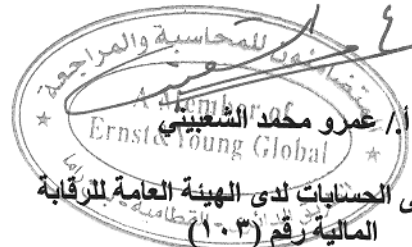 المتضامنون للمحاسبة والمراجعة
A Member of
Ernst & Young Global
أ./ عمرو محمد الشعبيني
الحسابات لدى الهيئة العامة للرقابة
المالية رقم (١٠٣)